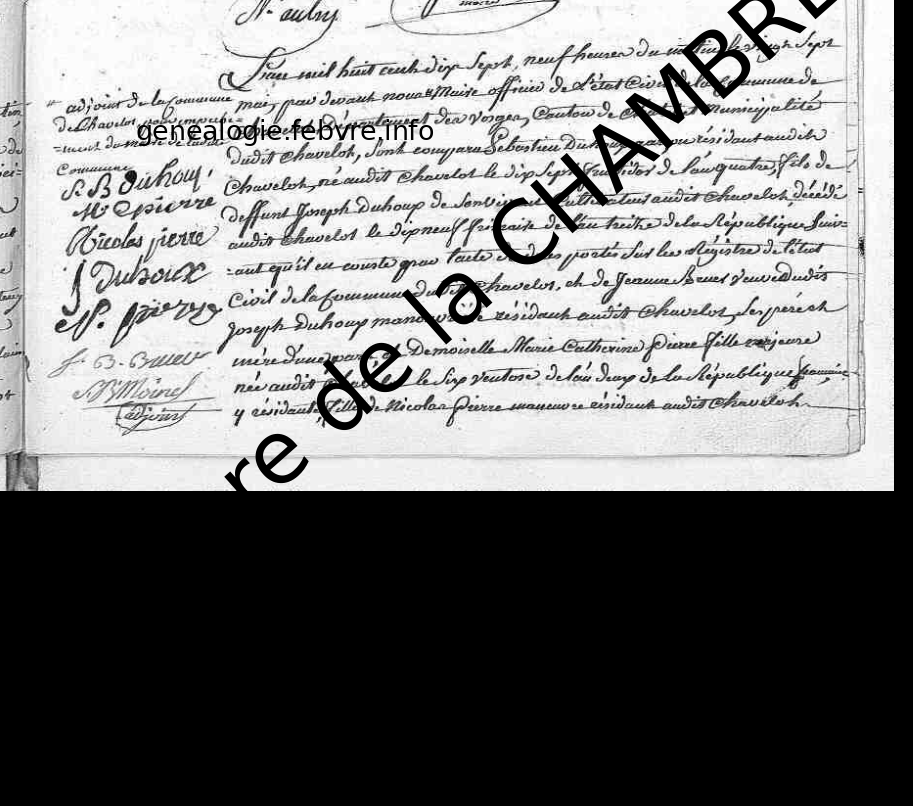 N. aubry
maire
L'an mil huit cent dix Sept, neuf heures du matin le vingt Sept
mai, par devant nous Maire officier de l'état Civil de la Commune de
Département des vosges, Canton de Municipalité
dudit Chavelot, Sont comparu Sébastien Duhoux garçon résidant audit
Chavelot, né audit Chavelot le dix Sept de l'an quatre, fils de
deffunt Joseph Duhoux de Son vivant Cultivateur audit Chavelot, décédé
audit Chavelot le dixneuf frimaire de l'an treize de la République Suiv=
=ant qu'il en conste par l'acte de portés Sur les Régistre de l'état
Civil de la Commune dudit Chavelot, et de Jeanne veuve dudit
Joseph Duhoux manoeuvre résidant audit Chavelot, Ses père et
mère d'une part, et Demoiselle Marie Catherine Pierre fille majeure
née audit Chavelot le Six ventose de l'an deux de la République française,
y résidante, fille de Nicolas Pierre manoeuvre résidant audit Chavelot
adjoint de la Commune
de Chavelot pour empeche=
=ment du maire de ladite
Commune
S. B Duhoux
M C pierre
Nicolas pierre
J Duhoux
N. pierre
adjoint
genealogie.febvre.info
re de la CHAMBRE